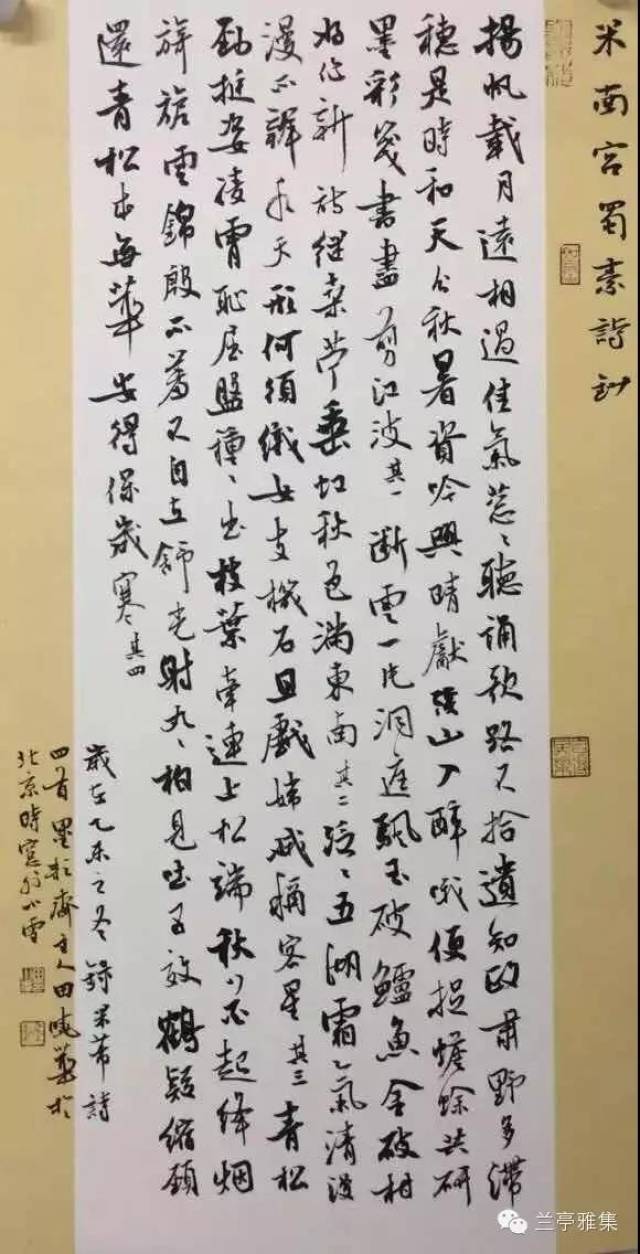 米南宫蜀素詩鈔
揚帆載月遠相過佳氣蔥〻聽誦歌路不拾遺知政肅野多滯
穗是時和天分秋暑資吟興晴獻溪山入醉哦便捉蟾蜍共研
墨彩箋書盡剪江波其一断雲一片洞庭飄玉破鱸魚金破柑
好作新詩繼桑苧垂虹秋色满東南其二泛〻五湖霜氣清漫
漫不辨水天形何須織女支機石且戲嫦娥稱客星其三青松
勁挺姿凌霄恥屈盤種〻出枝葉牽連上松端秋花起絳烟
旖旎雲錦殷不羞不自立舒光射丸〻柏見吐子效鶴疑縮頸
還青松本無華安得保歲寒其四
歲在乙未之冬錄米芾詩
四首墨齋主人田曉華於
北京時窗外小雪
兰亭雅集